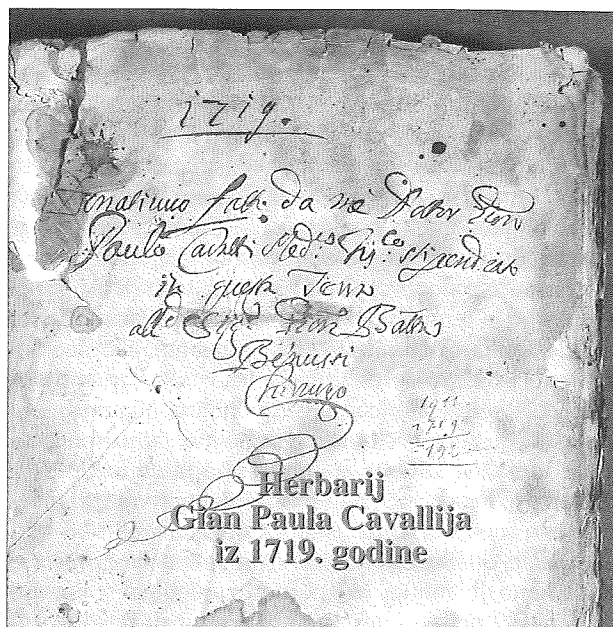 1719.
fatto da me Dottor Gion
Paulo Cavalli Med.co Fis.co stipendiato
in questa Terra
Sig.r Gion Batta
Benussi
Chirurgo
1911
1719
192
Herbarij
Gian Paula Cavallija
iz 1719. godine